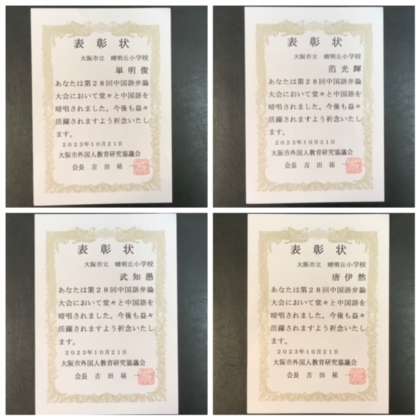 表彰状
大阪市立 晴明丘小学校
畢明俊
あなたは第28回中国語弁論
大会において堂々と中国語を
暗唱されました。今後も益々
活躍されますよう祈念いたし
ます。
2023年10月21日
大阪市外国人教育研究協議会
会長 吉田 祐一
表彰状
大阪市立 晴明丘小学校
范光輝
あなたは第28回中国語弁論
大会において堂々と中国語を
暗唱されました。今後も益々
活躍されますよう祈念いたし
ます。
2023年10月21日
大阪市外国人教育研究協議会
会長 吉田 祐一
表彰状
大阪市立 晴明丘小学校
武知愚
あなたは第28回中国語弁論
大会において堂々と中国語を
暗唱されました。今後も益々
活躍されますよう祈念いたし
ます。
2023年10月21日
大阪市外国人教育研究協議会
会長 吉田 祐一
表彰状
大阪市立 晴明丘小学校
唐伊然
あなたは第28回中国語弁論
大会において堂々と中国語を
暗唱されました。今後も益々
活躍されますよう祈念いたし
ます。
2023年10月21日
大阪市外国人教育研究協議会
会長 吉田 祐一